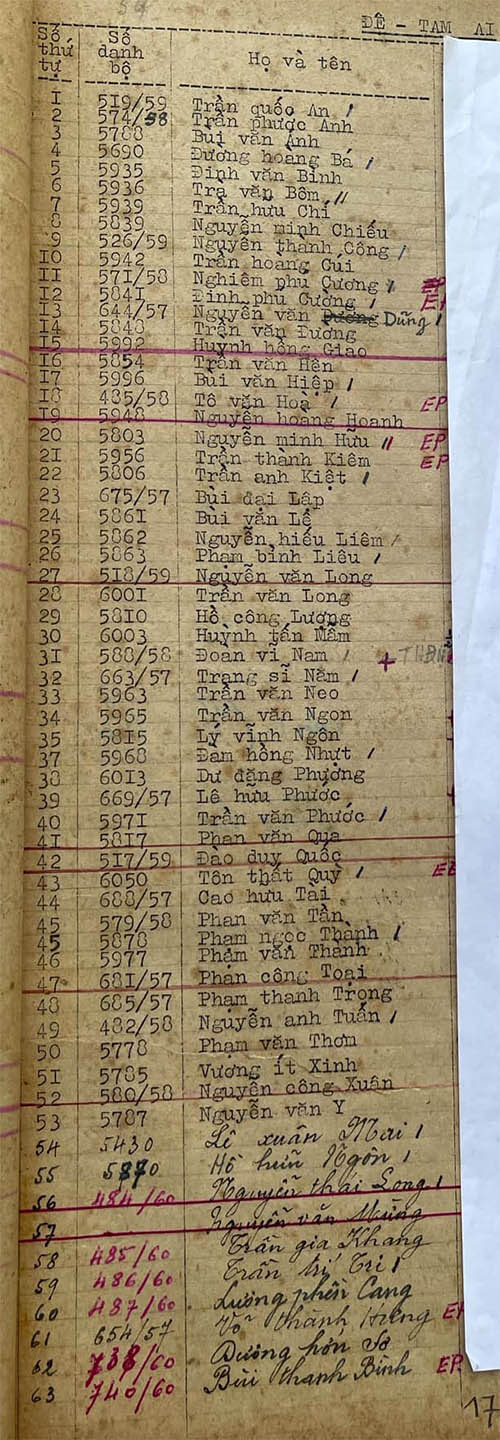 ĐỆ - TAM AI
Số thứ tự Số danh bộ Họ và tên
1 519/59 Trần quốc An /
2 574/58 Trần phước Anh
3 5788 Bùi văn Ánh
4 5690 Dương hoàng Bá /
5 5935 Đinh văn Bình
6 5936 Trà văn Bốm //
7 5939 Trần hưu Chí
8 5839 Nguyễn minh Chiếu
9 526/59 Nguyễn thành Công /
10 5942 Trần hoàng Cúi
11 571/58 Nghiêm phú Cương / EP
12 5841 Đinh phú Cường /
13 644/57 Nguyễn văn Dũng /
14 5848 Trần văn Đương
15 5992 Huỳnh hồng Giao
16 5854 Trần văn Hên
17 5996 Bùi văn Hiệp /
18 485/58 Tô văn Hoà / EP
19 5948 Nguyễn hoàng Hoanh
20 5803 Nguyễn minh Hữu // EP
21 5956 Trần thành Kiêm EP
22 5806 Trần anh Kiệt /
23 675/57 Bùi đại Lập
24 5861 Bùi văn Lê
25 5862 Nguyễn hiếu Liêm /
26 5863 Phạm bỉnh Liêu /
27 518/59 Nguyễn văn Long
28 6001 Trần văn Long
29 5810 Hồ công Lượng
30 6003 Huỳnh tấn Mẫm
31 588/58 Đoàn vĩ Nam / +
32 663/57 Trang sĩ Năm /
33 5963 Trần văn Neo
34 5965 Trần văn Ngon
35 5815 Lý vĩnh Ngôn /
37 5968 Đàm hồng Nhựt /
38 6013 Dư đăng Phượng
39 669/57 Lê hữu Phước
40 5971 Trần văn Phước /
41 5817 Phan văn Qua
42 517/59 Đào duy Quốc
43 6050 Tôn thất Quỳ /
44 688/57 Cao hưu Tài
45 579/58 Phan văn Tần
45 5878 Phạm ngọc Thành /
46 5977 Phạm văn Thành
47 681/57 Phan công Toại
48 685/57 Phạm thanh Trọng
49 482/58 Nguyễn anh Tuấn /
50 5778 Phạm văn Thơm
51 5785 Vương ít Xinh
52 580/58 Nguyễn công Xuân
53 5787 Nguyễn văn Y
54 5430 Lê xuân Mai /
55 5870 Hồ hữu Ngôn /
56 484/60 Nguyễn thái Long /
57 Nguyễn văn Mừng
58 485/60 Trần gia Khang
59 486/60 Trần trí Tri /
60 487/60 Lương phến Cang
61 654/57 Võ thành Hưng
62 738/60 Dương hớn Sơ
63 740/60 Bùi thanh Bình EP.
17